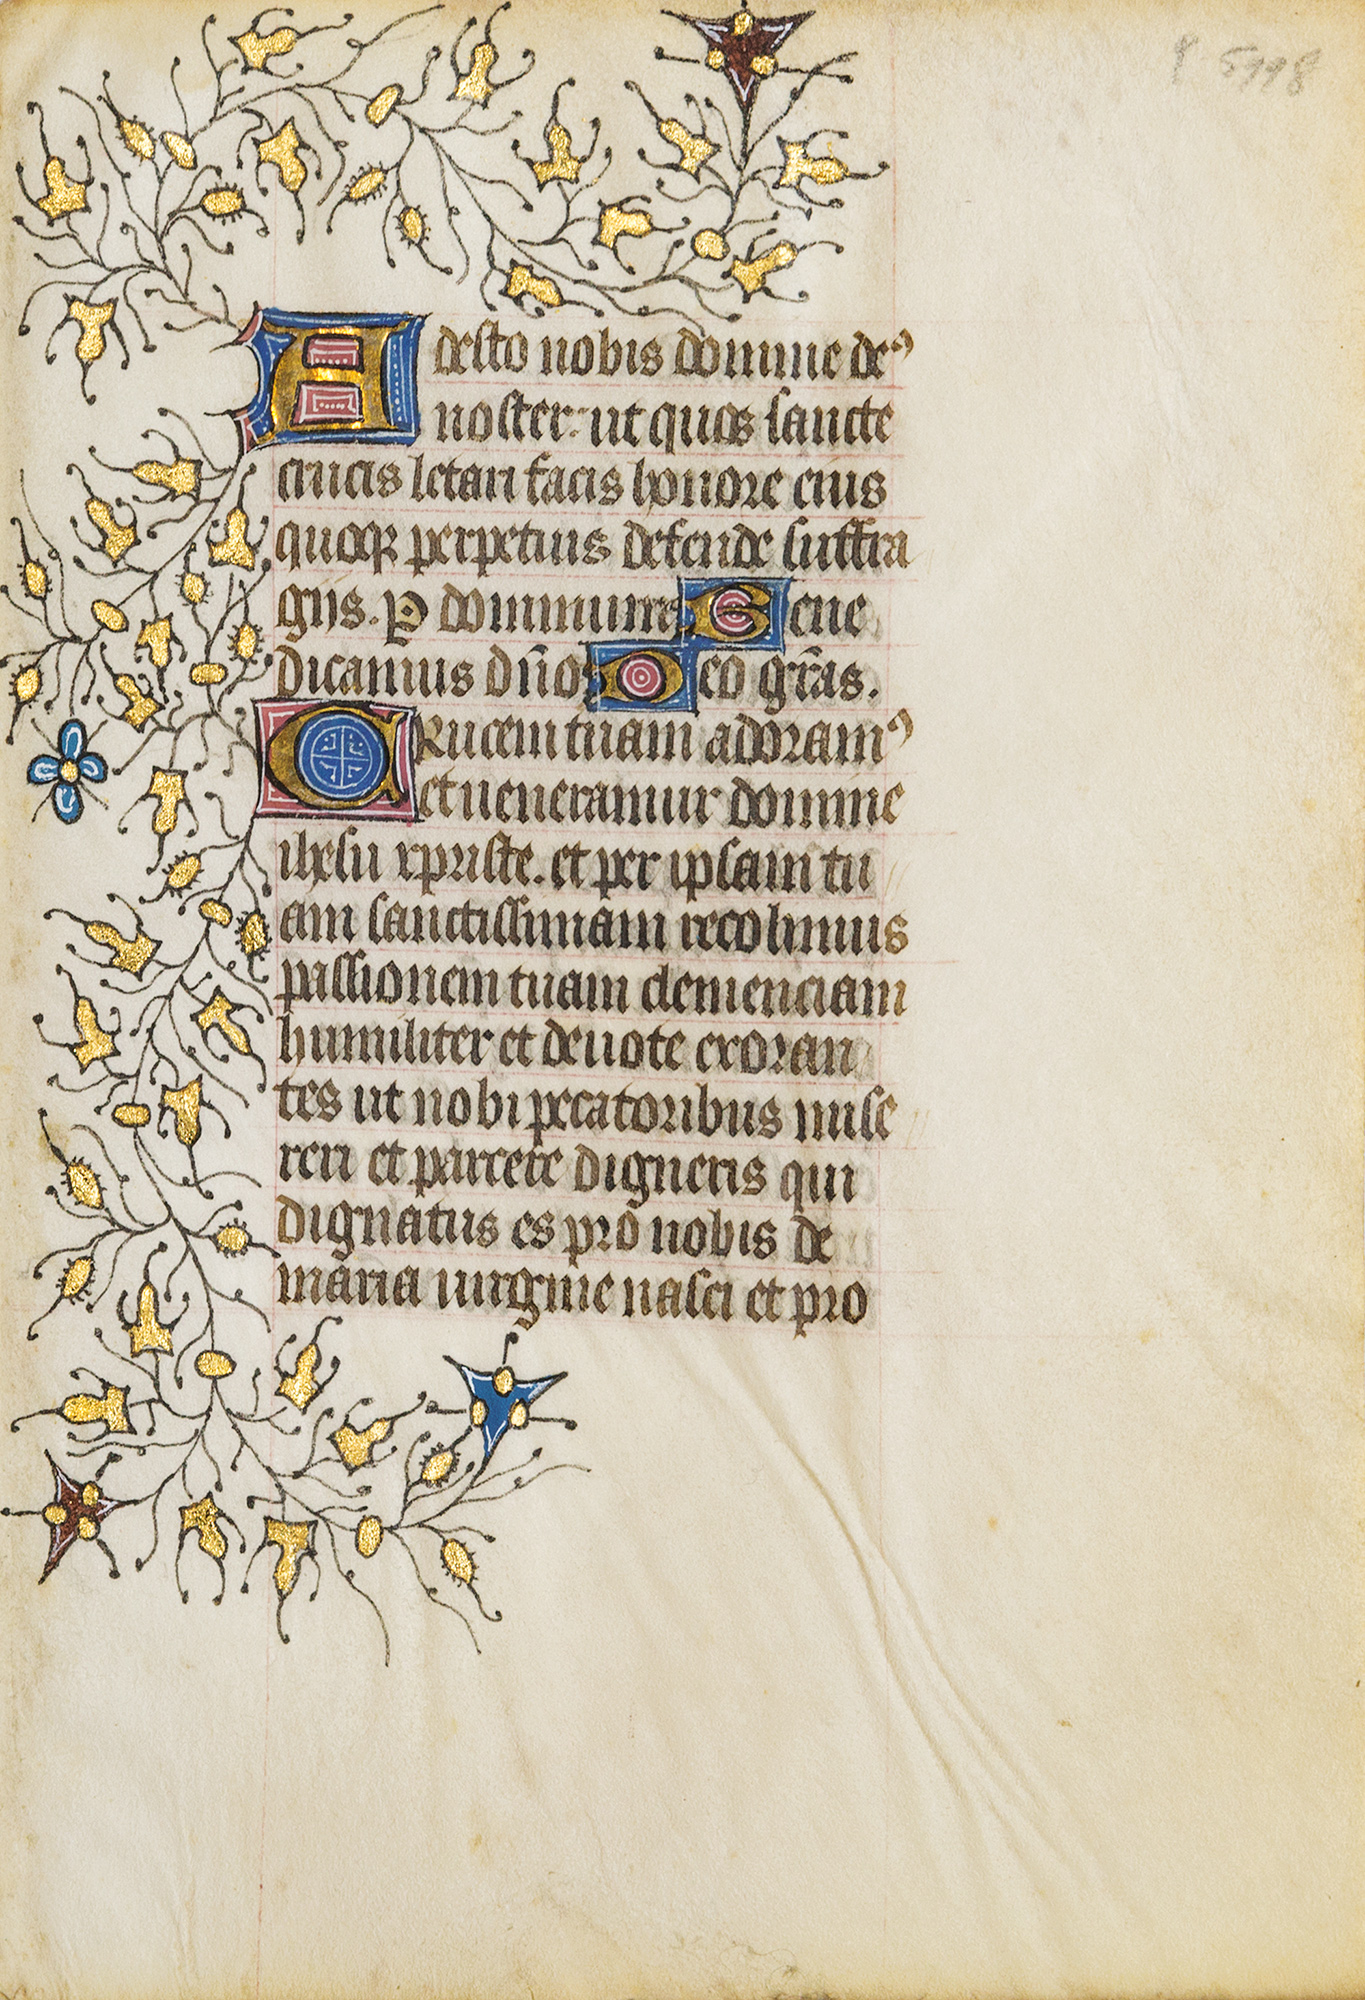 5998
Adesto nobis domine deꝰ
noster: ut quos sancte
crucis letari facis honore eius
quoqꝫ perpetuis defende suffra
giis. P dominum Bene
dicamus dn̄o Deo gr̄as.
CRucem tuam adoramꝰ
et ueneramur domine
ihesu xpriste. et per ipsam tu
am sanctissimam recolimus
passionem tuam clemenciam
humiliter et deuote exoran
tes ut nobi pecatoribus mise
reri et parcere digneris qui
dignatus es pro nobis de
maria uirgine nasci et pro